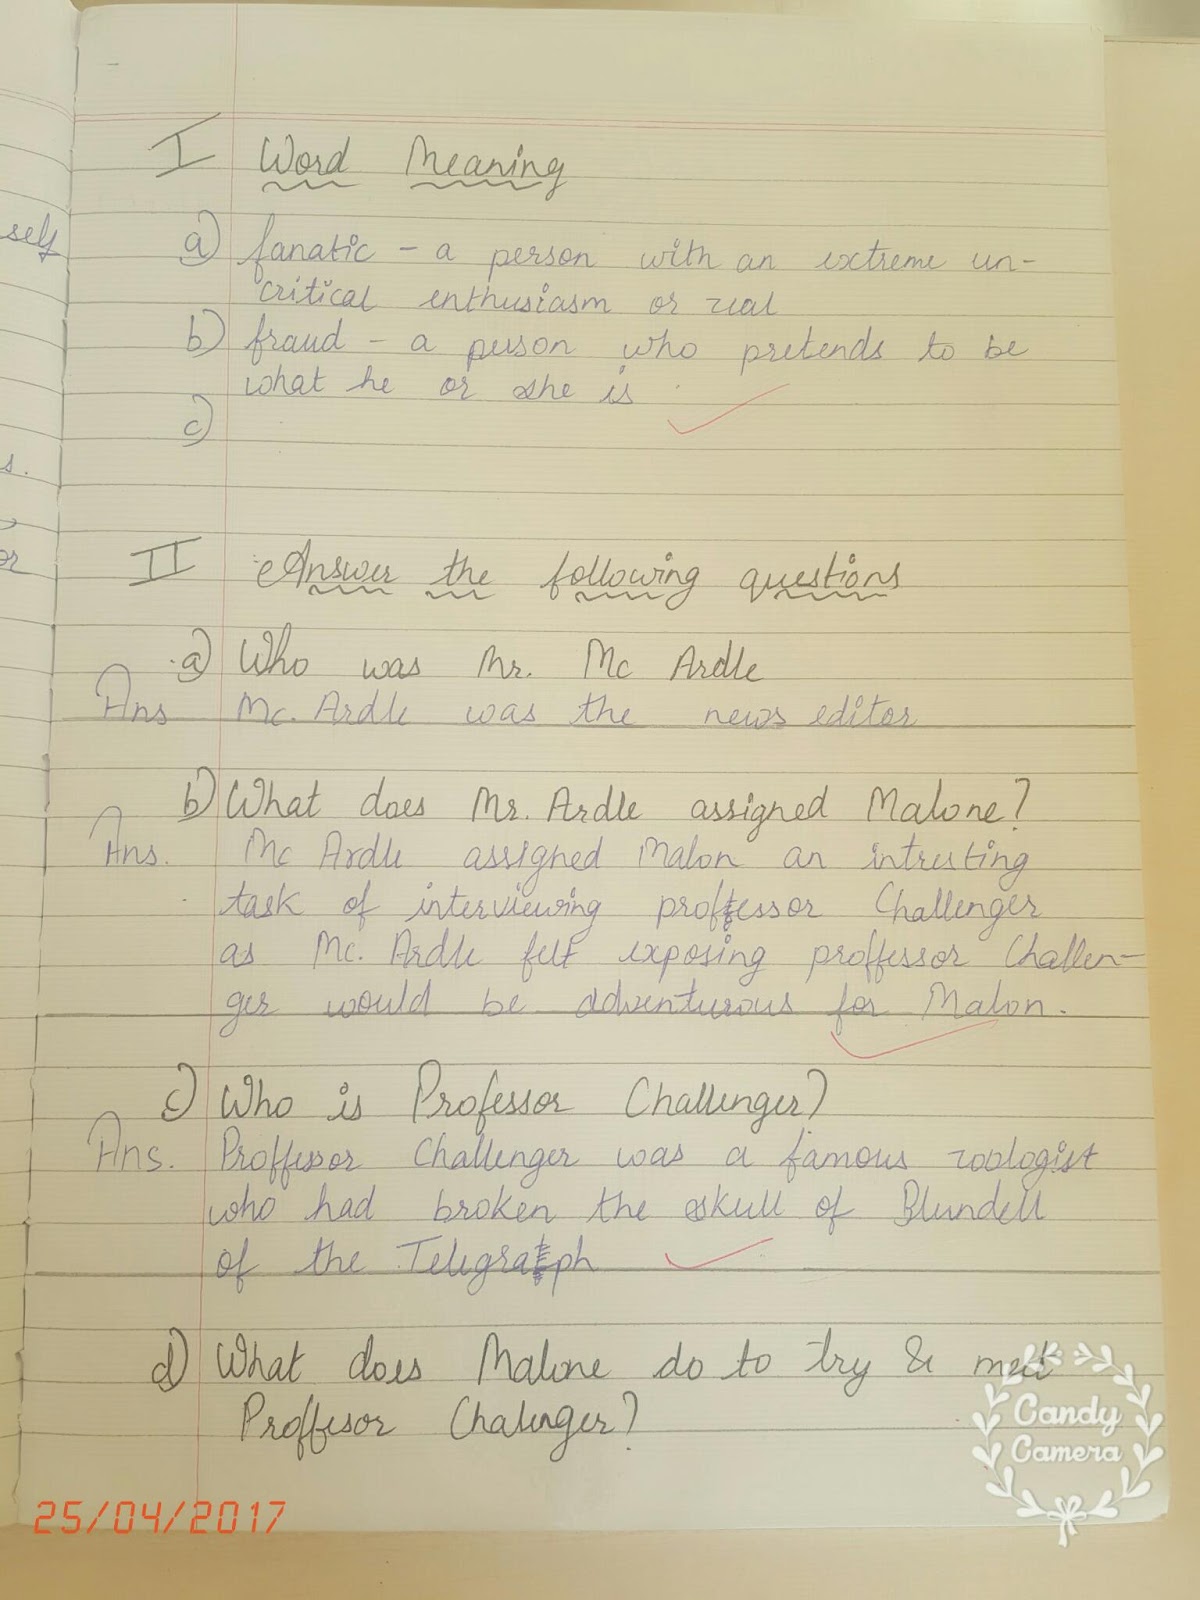 self
I Word Meaning
a) fanatic - a person with an extreme un-
critical enthusiasm or zeal
b) fraud - a person who pretends to be
what he or she is
c)
s.
or
II Answer the following questions
a) Who was Mr. Mc Ardle
Ans Mc. Ardle was the news editor
b) What does Mr. Ardle assigned Malone?
Ans. Mc Ardle assigned Malon an intresting
task of interviewing proffessor Challenger
as Mc. Ardle felt exposing proffessor Challen-
ger would be adventurous for Malon.
c) Who is Professor Challenger?
Ans. Proffessor Challenger was a famous zoologist
who had broken the skull of Blundell
of the Telegraph
d) What does Malone do to try & meet
Proffesor Chalenger?
Candy
Camera
25/04/2017